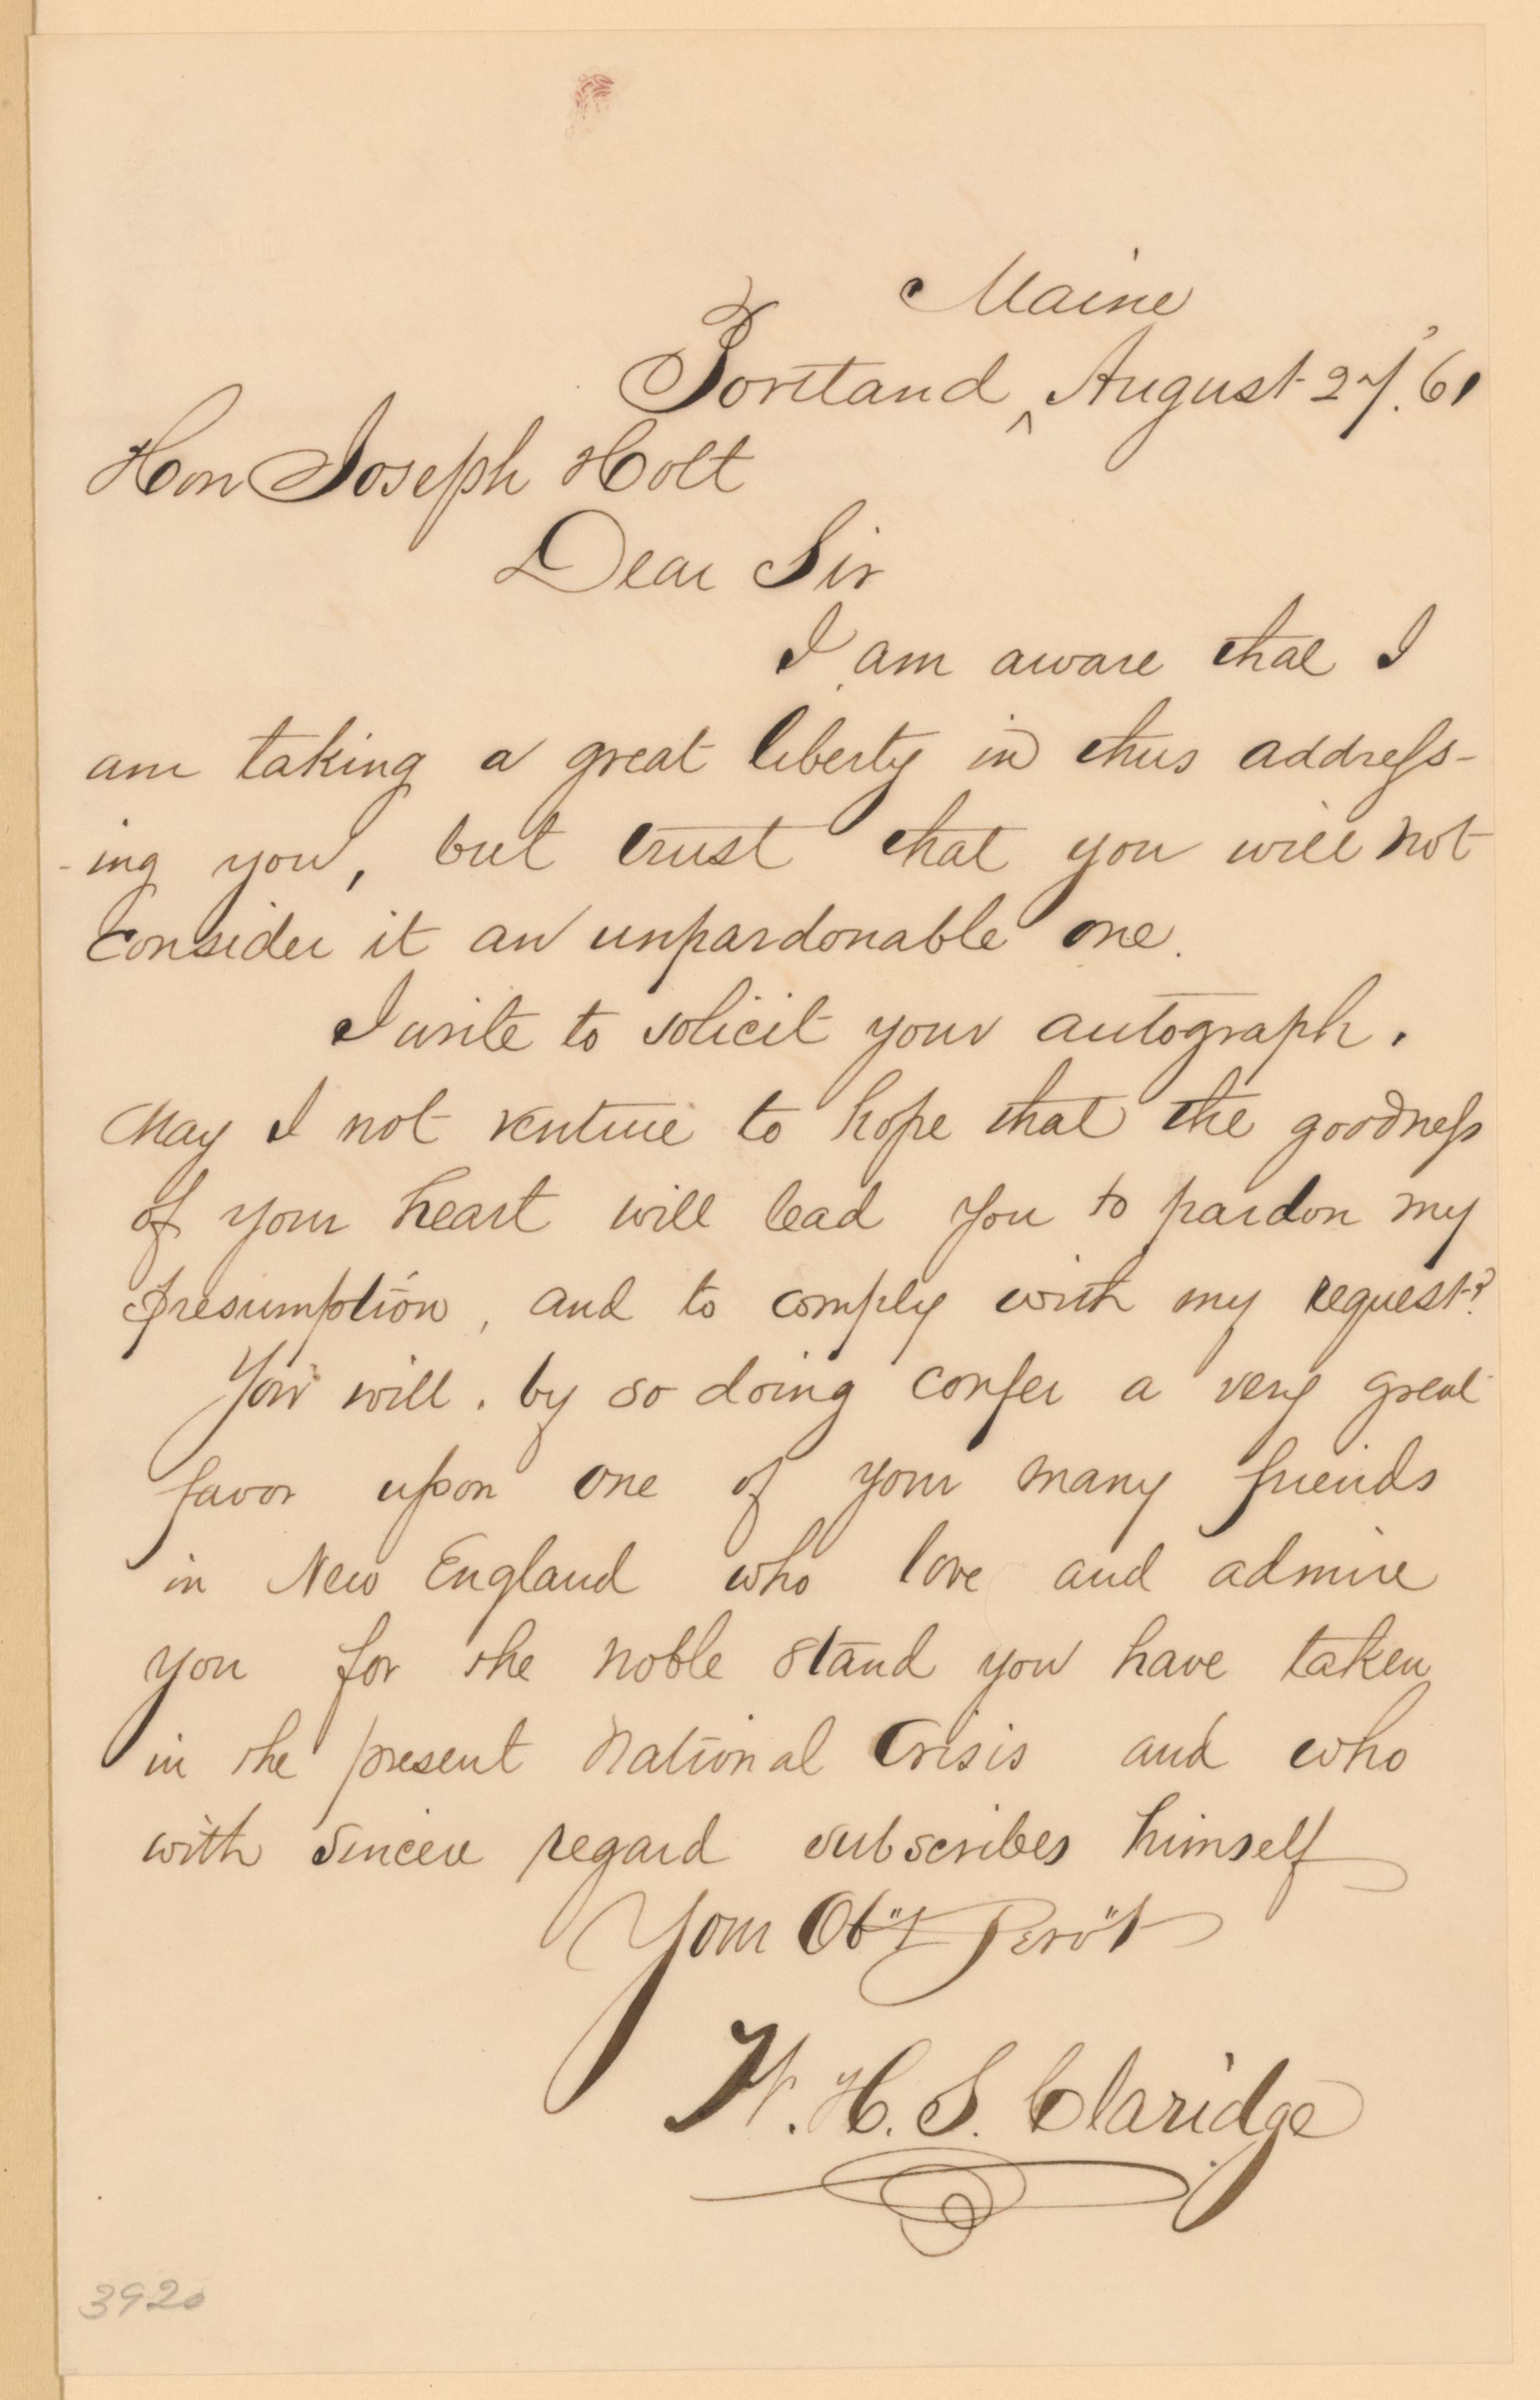 Maine
Portland ‸ August 27. '61
Hon Joseph Holt
Dear Sir
I am aware that I
am taking a great liberty in thus address-
-ing you, but trust that you will not
consider it an unpardonable one.
I write to solicit your autograph.
May I not venture to hope that the goodness
of your heart will lead you to pardon my
presumption, and to comply with my request?
You will, by so doing confer a very great
favor upon one of your many friends
in New England who love and admire
you for the noble stand you have taken
in the present National Crisis and who
with sincere regard subscribes himself
Your Ob"t Serv"t
W. H. S. Claridge
3920